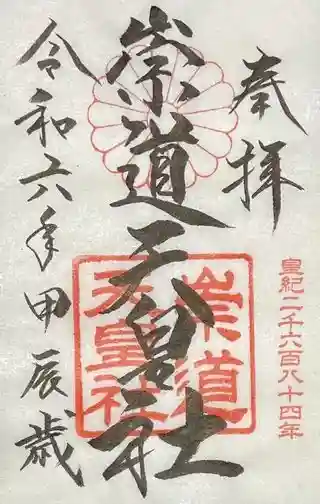 奉拝
皇紀二千六百八十四年
崇道天皇社
崇道
天皇社
令和六年甲辰歳